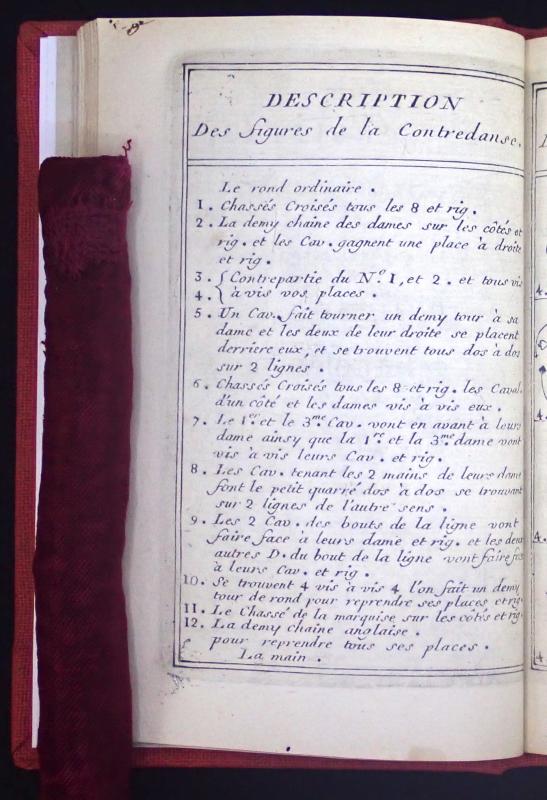 DESCRIPTION
Des figures de la Contredanse.
Le rond ordinaire.
1. Chassés Croisés tous les 8 et rig.
2. La demy chaine des dames sur les côtés et
rig. et les Cav. gagnent une place à droite
et rig.
3. { Contrepartie du N.º 1, et 2. et tous vis
4. { à vis vos places.
5. Un Cav. fait tourner un demy tour à sa
dame et les deux de leur droite se placent
derriere eux, et se trouvent tous dos à dos
sur 2 lignes.
6. Chassés Croisés tous les 8 et rig. les Caval.
d'un côté et les dames vis à vis eux.
7. Le 1.er et le 3.me Cav. vont en avant à leurs
dame ainsy que la 1.re et la 3.me dame vont
vis à vis leurs Cav. et rig.
8. Les Cav. tenant les 2 mains de leurs dame
font le petit quarré dos à dos se trouvant
sur 2 lignes de l'autre sens.
9. Les 2 Cav. des bouts de la ligne vont
faire face à leurs dame et rig. et les deux
autres D. du bout de la ligne vont faire
à leurs Cav. et rig.
10. Se trouvent 4 vis à vis 4 l'on fait un demy
tour de rond pour reprendre ses places et rig.
11. Le Chassé de la marquise sur les côtés et rig.
12. La demy chaine anglaise.
pour reprendre tous ses places.
La main.